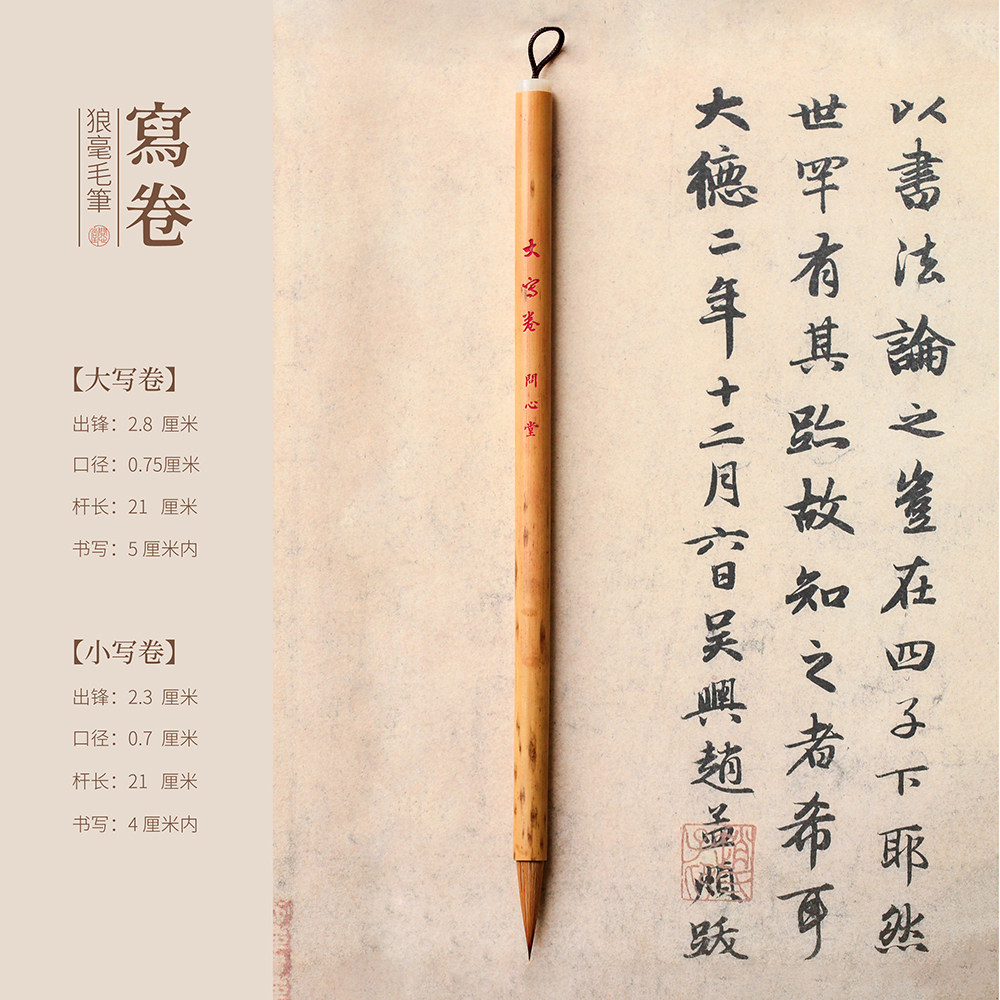 寫卷
狼毫毛筆
【大写卷】
出锋：2.8 厘米
口径：0.75厘米
杆长：21 厘米
书写：5 厘米内
【小写卷】
出锋：2.3 厘米
口径：0.7 厘米
杆长：21 厘米
书写：4 厘米内
大写卷 問心堂
以書法論之豈在四子下耶然
世罕有其跡故知之者希耳
大德二年十二月六日吴興趙孟頫跋